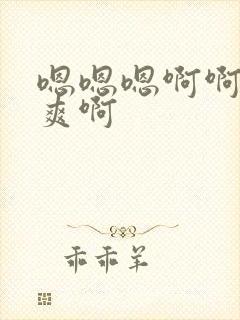 嗯嗯嗯啊啊
爽啊
乖乖羊